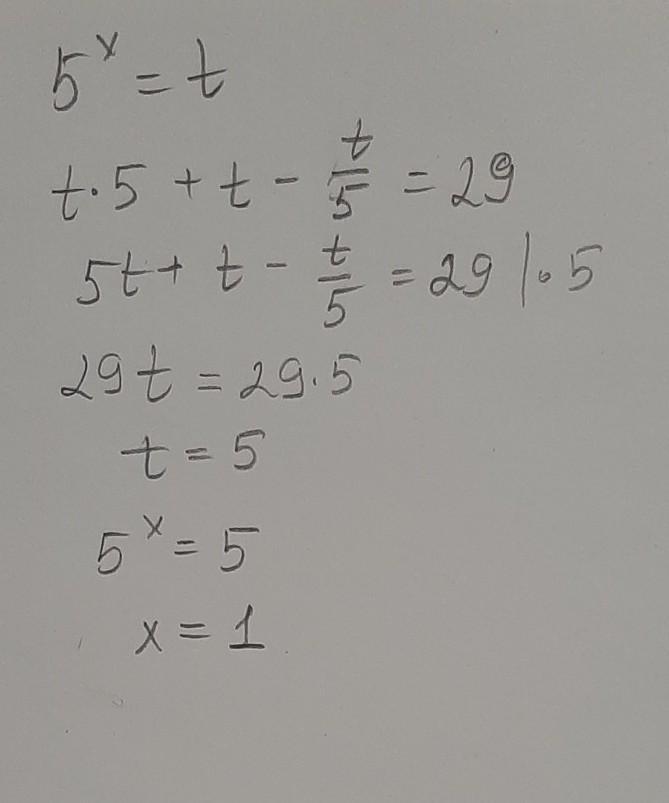 5^x = t
t · 5 + t - t/5 = 29
5t + t - t/5 = 29 | · 5
29t = 29 · 5
t = 5
5^x = 5
x = 1